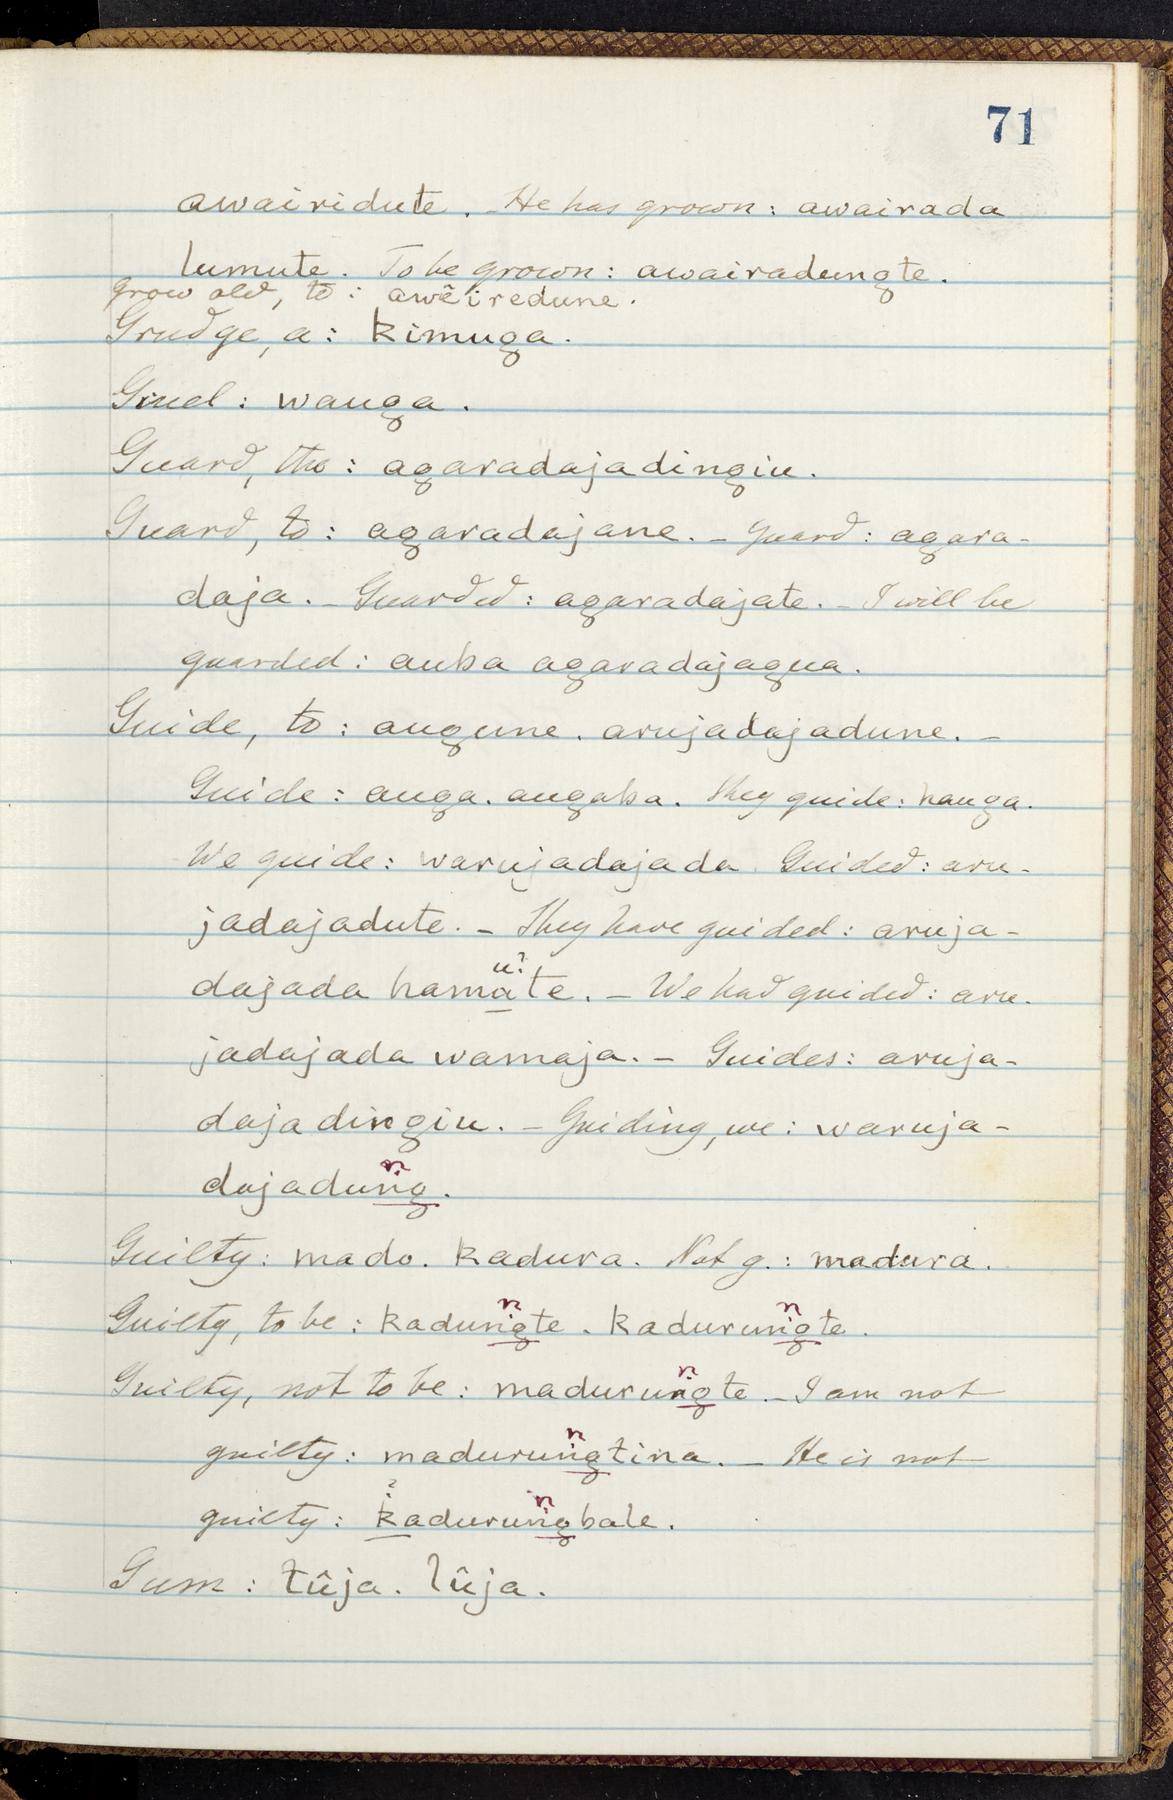 71
awairidute. - He has grown: awairada
lumute. To be grown: awairadungte.
grow old, to: awêiredune.
Grudge, a: kimuga.
Gruel: wauga.
Guard, the: agaradajadingiu.
Guard, to: agaradajane. - Guard: agara-
daja. - Guarded: agaradajate. - I will be
guarded: auba agaradajagua.
Guide, to: augune. arujadajadune. -
Guide: auga. augaba. They guide: hauga.
We guide: warujadajada. Guided: aru-
jadajadute. - They have guided: aruja-
u?
dajada hamate. - We had guided: aru-
jadajada wamaja. - Guides: aruja-
dajadingiu. - Guiding, we: waruja-
n
dajadung.
Guilty: mado. kadura. Not g.: madura.
n n
Guilty, to be: kadungte. kadurungte.
n
Guilty, not to be: madurungte. - I am not
n
guilty: madurungtina. - He is not
? n
guilty: kadurungbale.
Gum: tûja. lûja.